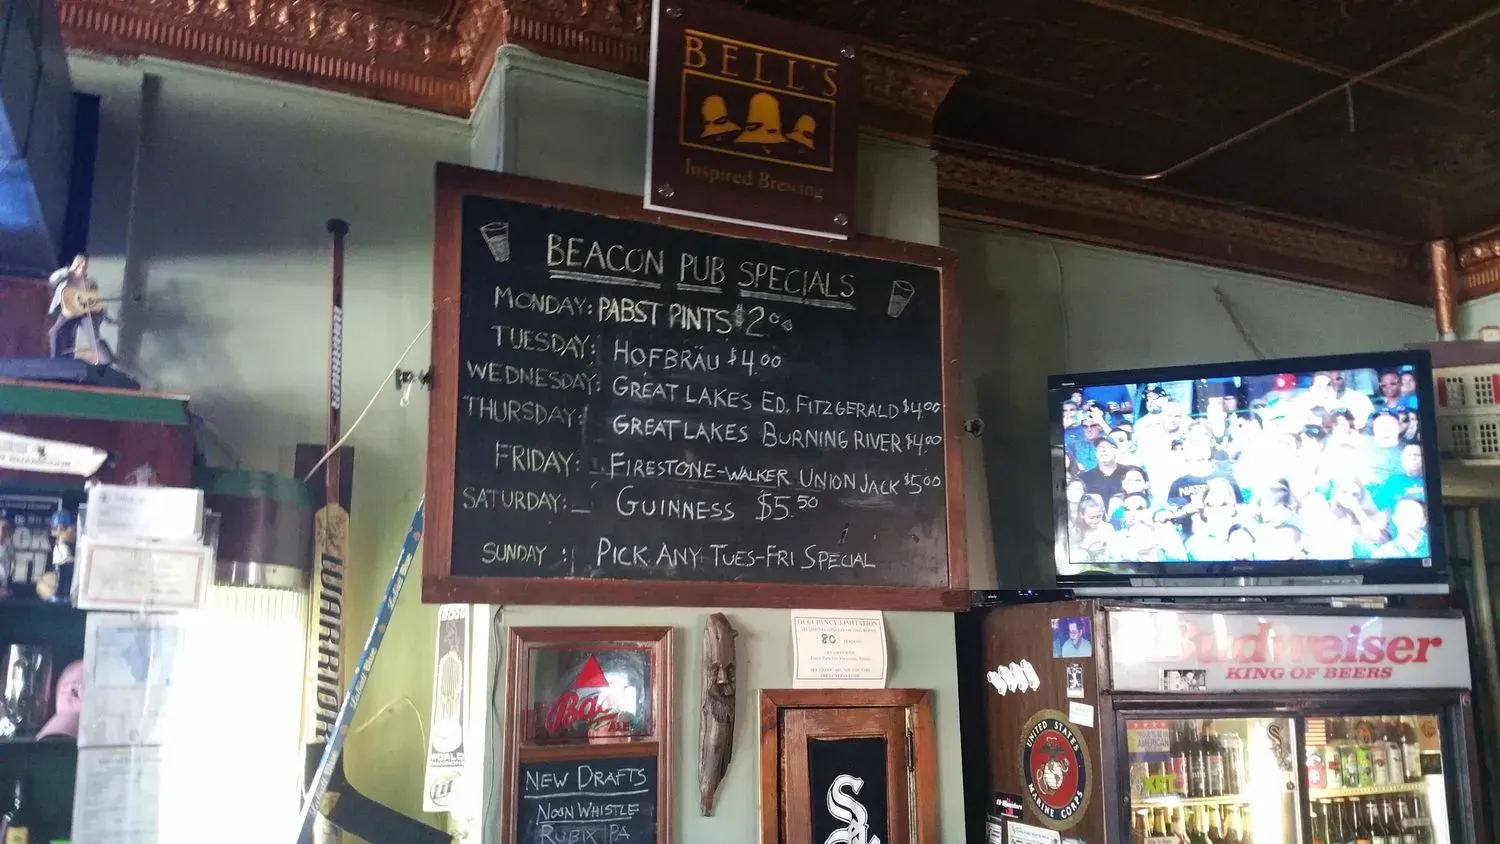 BELL'S
Inspired Brewing
BEACON PUB SPECIALS
MONDAY: PABST PINTS $2.00
TUESDAY: HOFBRÄU $4.00
WEDNESDAY: GREAT LAKES ED. FITZGERALD $4.00
THURSDAY: GREAT LAKES BURNING RIVER $4.00
FRIDAY: FIRESTONE-WALKER UNION JACK $5.00
SATURDAY: GUINNESS $5.50
SUNDAY: PICK ANY TUES-FRI SPECIAL
WARRIOR
WARRIOR
OCCUPANCY LIMITATION
80
Bass
ALE
NEW DRAFTS
NOON WHISTLE
RUBIX IPA
Budweiser
KING OF BEERS
UNITED STATES
MARINE CORPS